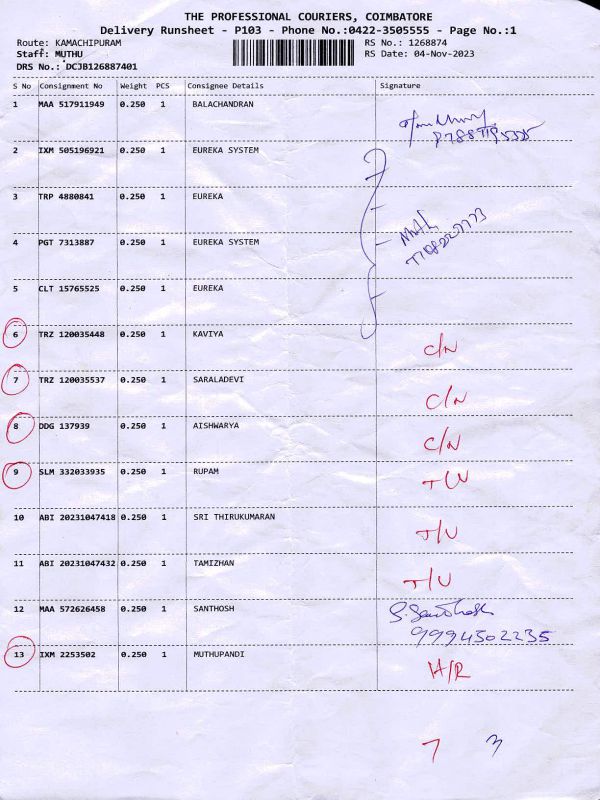 THE PROFESSIONAL COURIERS, COIMBATORE
Delivery Runsheet - P103 - Phone No.:0422-3505555 - Page No.:1
Route: KAMACHIPURAM RS No.: 1268874
Staff: MUTHU RS Date: 04-Nov-2023
DRS No.: DCJB126887401
S No Consignment No Weight PCS Consignee Details Signature
1 MAA 517911949 0.250 1 BALACHANDRAN
2 IXM 505196921 0.250 1 EUREKA SYSTEM
3 TRP 4880841 0.250 1 EUREKA
4 PGT 7313887 0.250 1 EUREKA SYSTEM
5 CLT 15765525 0.250 1 EUREKA
6 TRZ 120035448 0.250 1 KAVIYA
C/N
7 TRZ 120035537 0.250 1 SARALADEVI
C/N
8 DDG 137939 0.250 1 AISHWARYA
C/N
9 SLM 332033935 0.250 1 RUPAM
10 ABI 20231047418 0.250 1 SRI THIRUKUMARAN
T/U
11 ABI 20231047432 0.250 1 TAMIZHAN
T/U
12 MAA 572626458 0.250 1 SANTHOSH S. Santhosh
9994502235
13 IXM 2253502 0.250 1 MUTHUPANDI
H/R
7 3